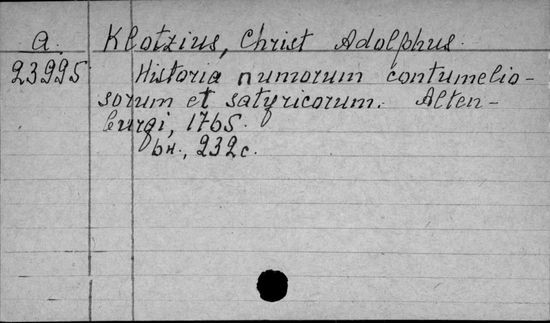 a. Klotzius, Christ Adolphus.
23995 Historia numorum contumelio-
sorum et satyricorum. Alten-
burgi, 1765.
bн., 232 c.